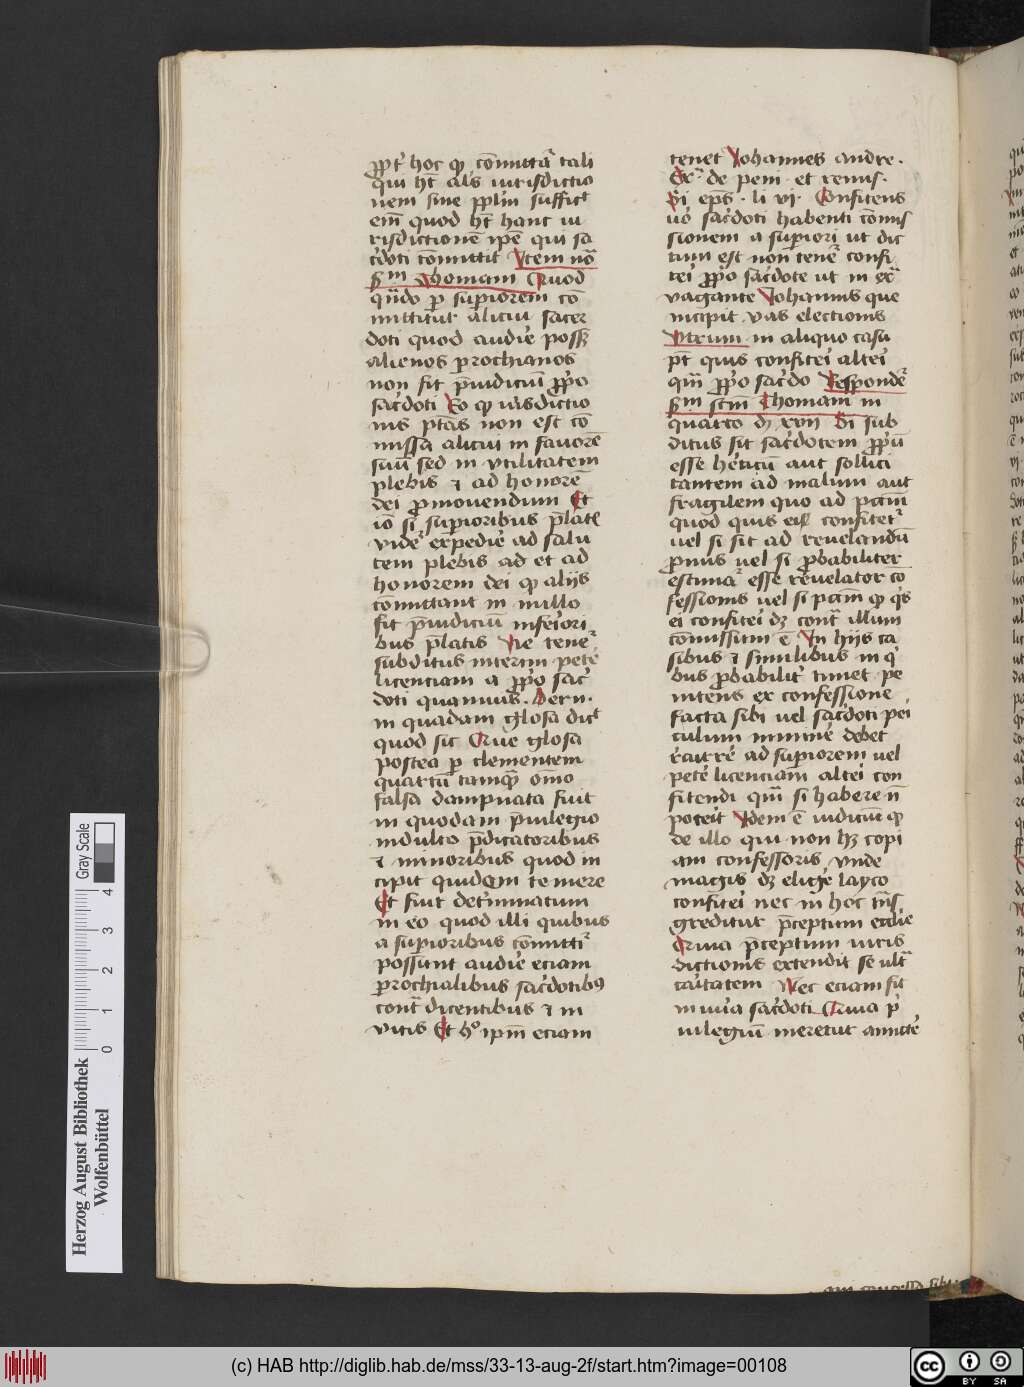 ppt̾ hoc qp cōmittat̾ tali
qui ht̄ als̄ iurisdictio
nem sine pplm̄ suffic̄
em̄ quod ht̄ hanc iu
risdictionē ipē qui sa
c̄doti cōmittit Item nō
sm̄ Thomam Quod
qn̄do p̱ supiorem cō
mittitur alicui sacer
doti quod audir̄e poss̄
alienos prochianos
non fit p̄iudiciū pp̄o
sac̄doti Eo qp iurisdictio
nis ptās non est cō
missa alicui in fauorē
suū sed in vtilitatem
plebis ⁊ ad honorē
dei promouendum Et
iō si supioribus p̄latꝭ
vidēt expedir̄e ad salu
tem plebis ad et ad
honorem dei qp aliis
cōmittant in nullo
fit p̄iudiciū inferiori
bus p̄latis Nec tenet̾
subditus interim petēe
licenciam a pp̄o sac̄
doti quamuis. Bern.
in quadam glosa dic̄
quod sic Que glosa
postea p̱ clementem
quartū tamqꝫ om̄o
falsa dampnata fuit
in quodam p̄uilegio
indulto p̄dicatoribus
⁊ minoribus quod in
cipit quidem temere
Et fuit det̄minatum
in eo quod illi quibus
a supioribus cōmitti̾
possunt audir̄e eciam
prochialibus sac̄dotibꝰ
cont̄a dicentibus ⁊ in
vitis Et hº ipm̄ eciam
tenet Johannes andre.
Ex̄ de peni. et remis.
Si ep̄s. li vi. Confitens
uō sac̄doti habenti cōmis
sionem a supiori ut dic
tum est non tenet̾ confi
teri pp̄o sac̄dote ut in ex̄
vagante Johannis que
incipit vas electionis
Vtrum in aliquo casu
pt̄ quis confiteri alteri
qm̄ pp̄o sac̄do Respondet̾
sm̄ scm̄ Thomam in
quarto dꝫ xvii Si sub
ditus sit sac̄dotem pp̄ū
esse heticū aut sollici
tantem ad malum aut
fragilem quo ad pcm̄
quod quis eis confitet̾
uel si sit ad reuelandū
pnus uel si probabiliter
estimat̾ esse reuelator cō
fessionis uel si pcm̄ qp qͥs
ei confiteri dꝫ cont̄ illum
cōmissum ē In hiis ca
sibus ⁊ similibus in qͥ
bus probabilit̾ timet pe
nitens ex confessione
facta sibi uel sac̄doti peri
culum imminē̄e debet
rēcurrē̄e ad supiorem uel
petē̄e licenciam alteri con
fitendi qm̄ si habere n̄
poterit Idem ē iudiciū qp
de illo qui non hꝫ copi
am confessoris vnde
magis dꝫ elige̾re layco
confiteri nec in hoc tn̄s
greditur p̄ceptum ecclīe
Quia p̄ceptum iuris
dictionis extendit se ult̄
caritatem Nec eciam fit
iniuria sac̄doti Quia p̄
uilegiū meretur amitte̾